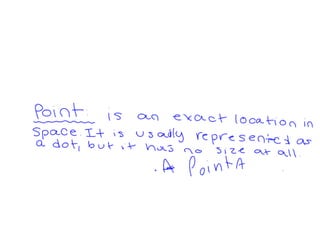 Point: is an exact location in
space. It is usually represented as
a dot, but it has no size at all.
.A Point A